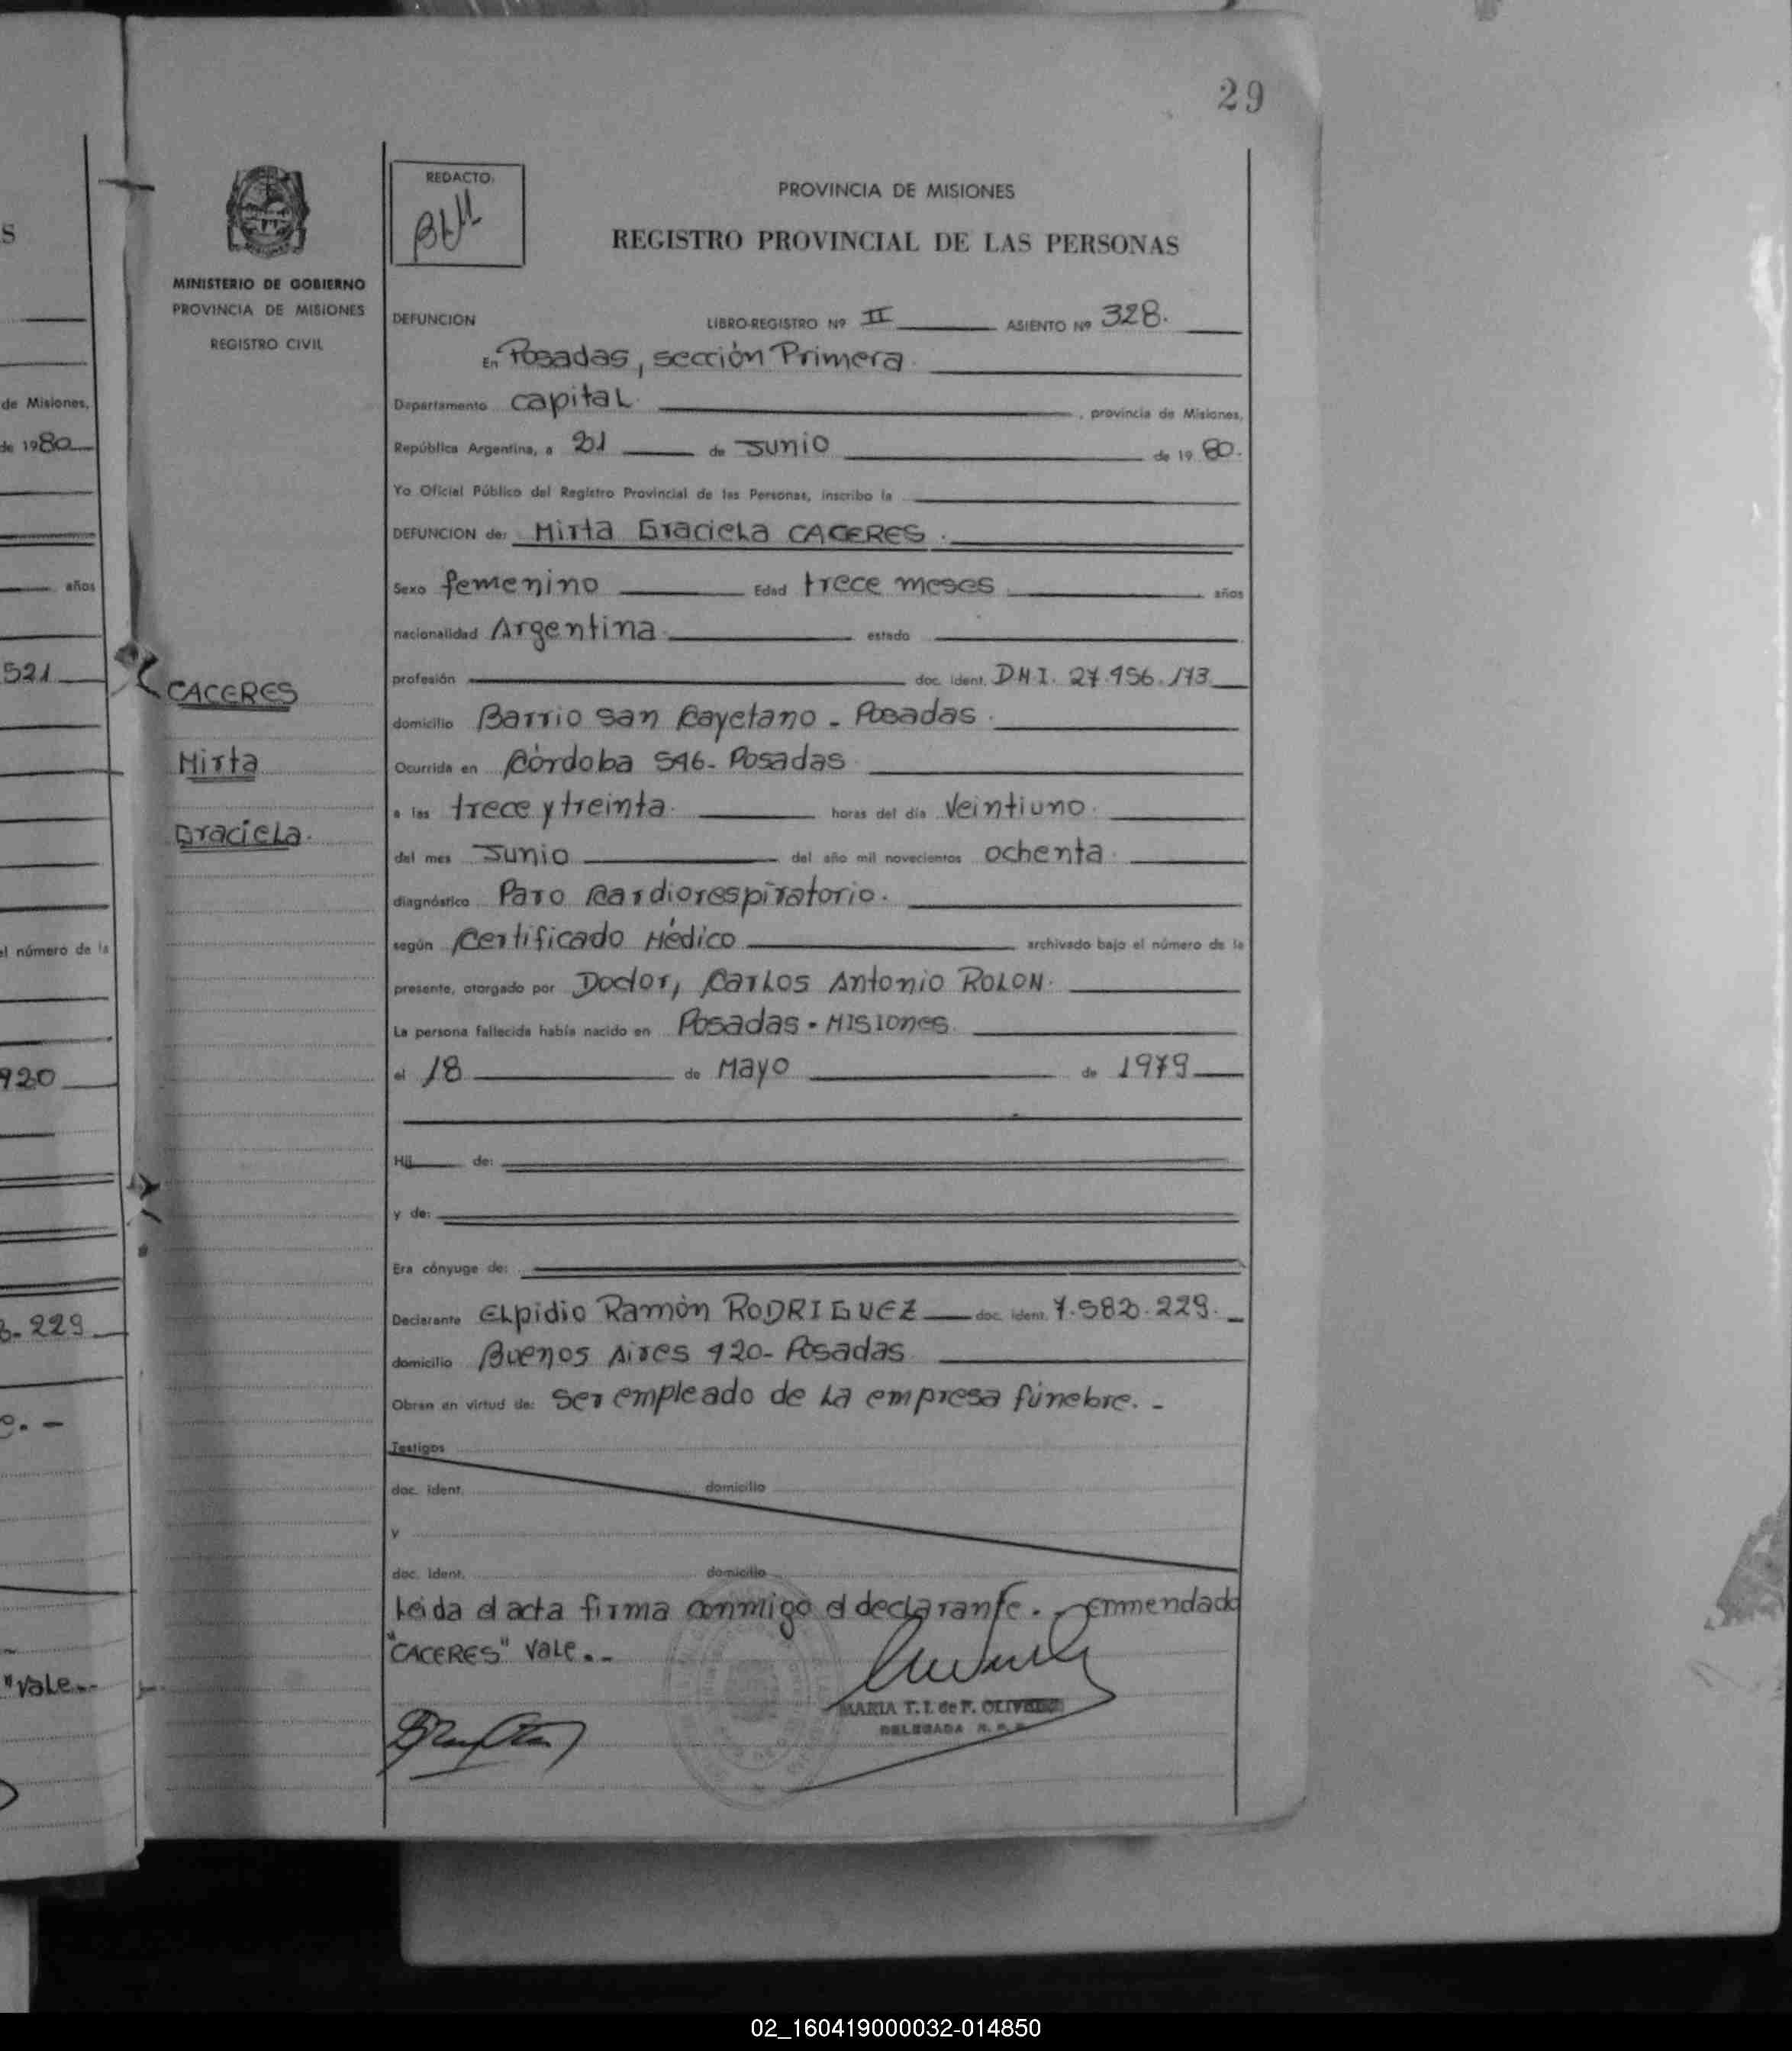 29
S
de Misiones,
de 1980
años
521
el número de la
920
229
e. -
"Vale.-
MINISTERIO DE GOBIERNO
PROVINCIA DE MISIONES
REGISTRO CIVIL
CACERES
Mirta
Graciela.
REDACTO:
PROVINCIA DE MISIONES
REGISTRO PROVINCIAL DE LAS PERSONAS
DEFUNCION LIBRO-REGISTRO Nº II ASIENTO Nº 328.
En Posadas, sección Primera.
Departamento capital. , provincia de Misiones,
República Argentina, a 21 de Junio de 19 80.
Yo Oficial Público del Registro Provincial de las Personas, inscribo la
DEFUNCION de: Mirta Graciela CACERES.
Sexo femenino Edad trece meses años
nacionalidad Argentina. estado
profesión doc. ident. D.N.I. 27.456.173
domicilio Barrio San Cayetano - Posadas.
Ocurrida en Córdoba 546- Posadas
a las trece y treinta. horas del día Veintiuno.
del mes Junio del año mil novecientos ochenta.
diagnóstico Paro Cardiorespiratorio.
según Certificado Médico archivado bajo el número de la
presente, otorgado por Doctor, Carlos Antonio ROLON.
La persona fallecida había nacido en Posadas - Misiones.
el 18 de Mayo de 1979
Hij de:
y de:
Era cónyuge de:
Declarante Elpidio Ramón RODRIGUEZ doc. ident. 7.582.229.
domicilio Buenos Aires 920- Posadas
Obran en virtud de: Ser empleado de la empresa fúnebre. -
Testigos
doc. ident. domicilio
y
doc. ident. domicilio
Leida el acta firma conmigo el declarante. - enmendado
"CACERES" Vale. -
MARIA T. I. de F. OLIVERO
DELEGADA R. P. P.
02_160419000032-014850